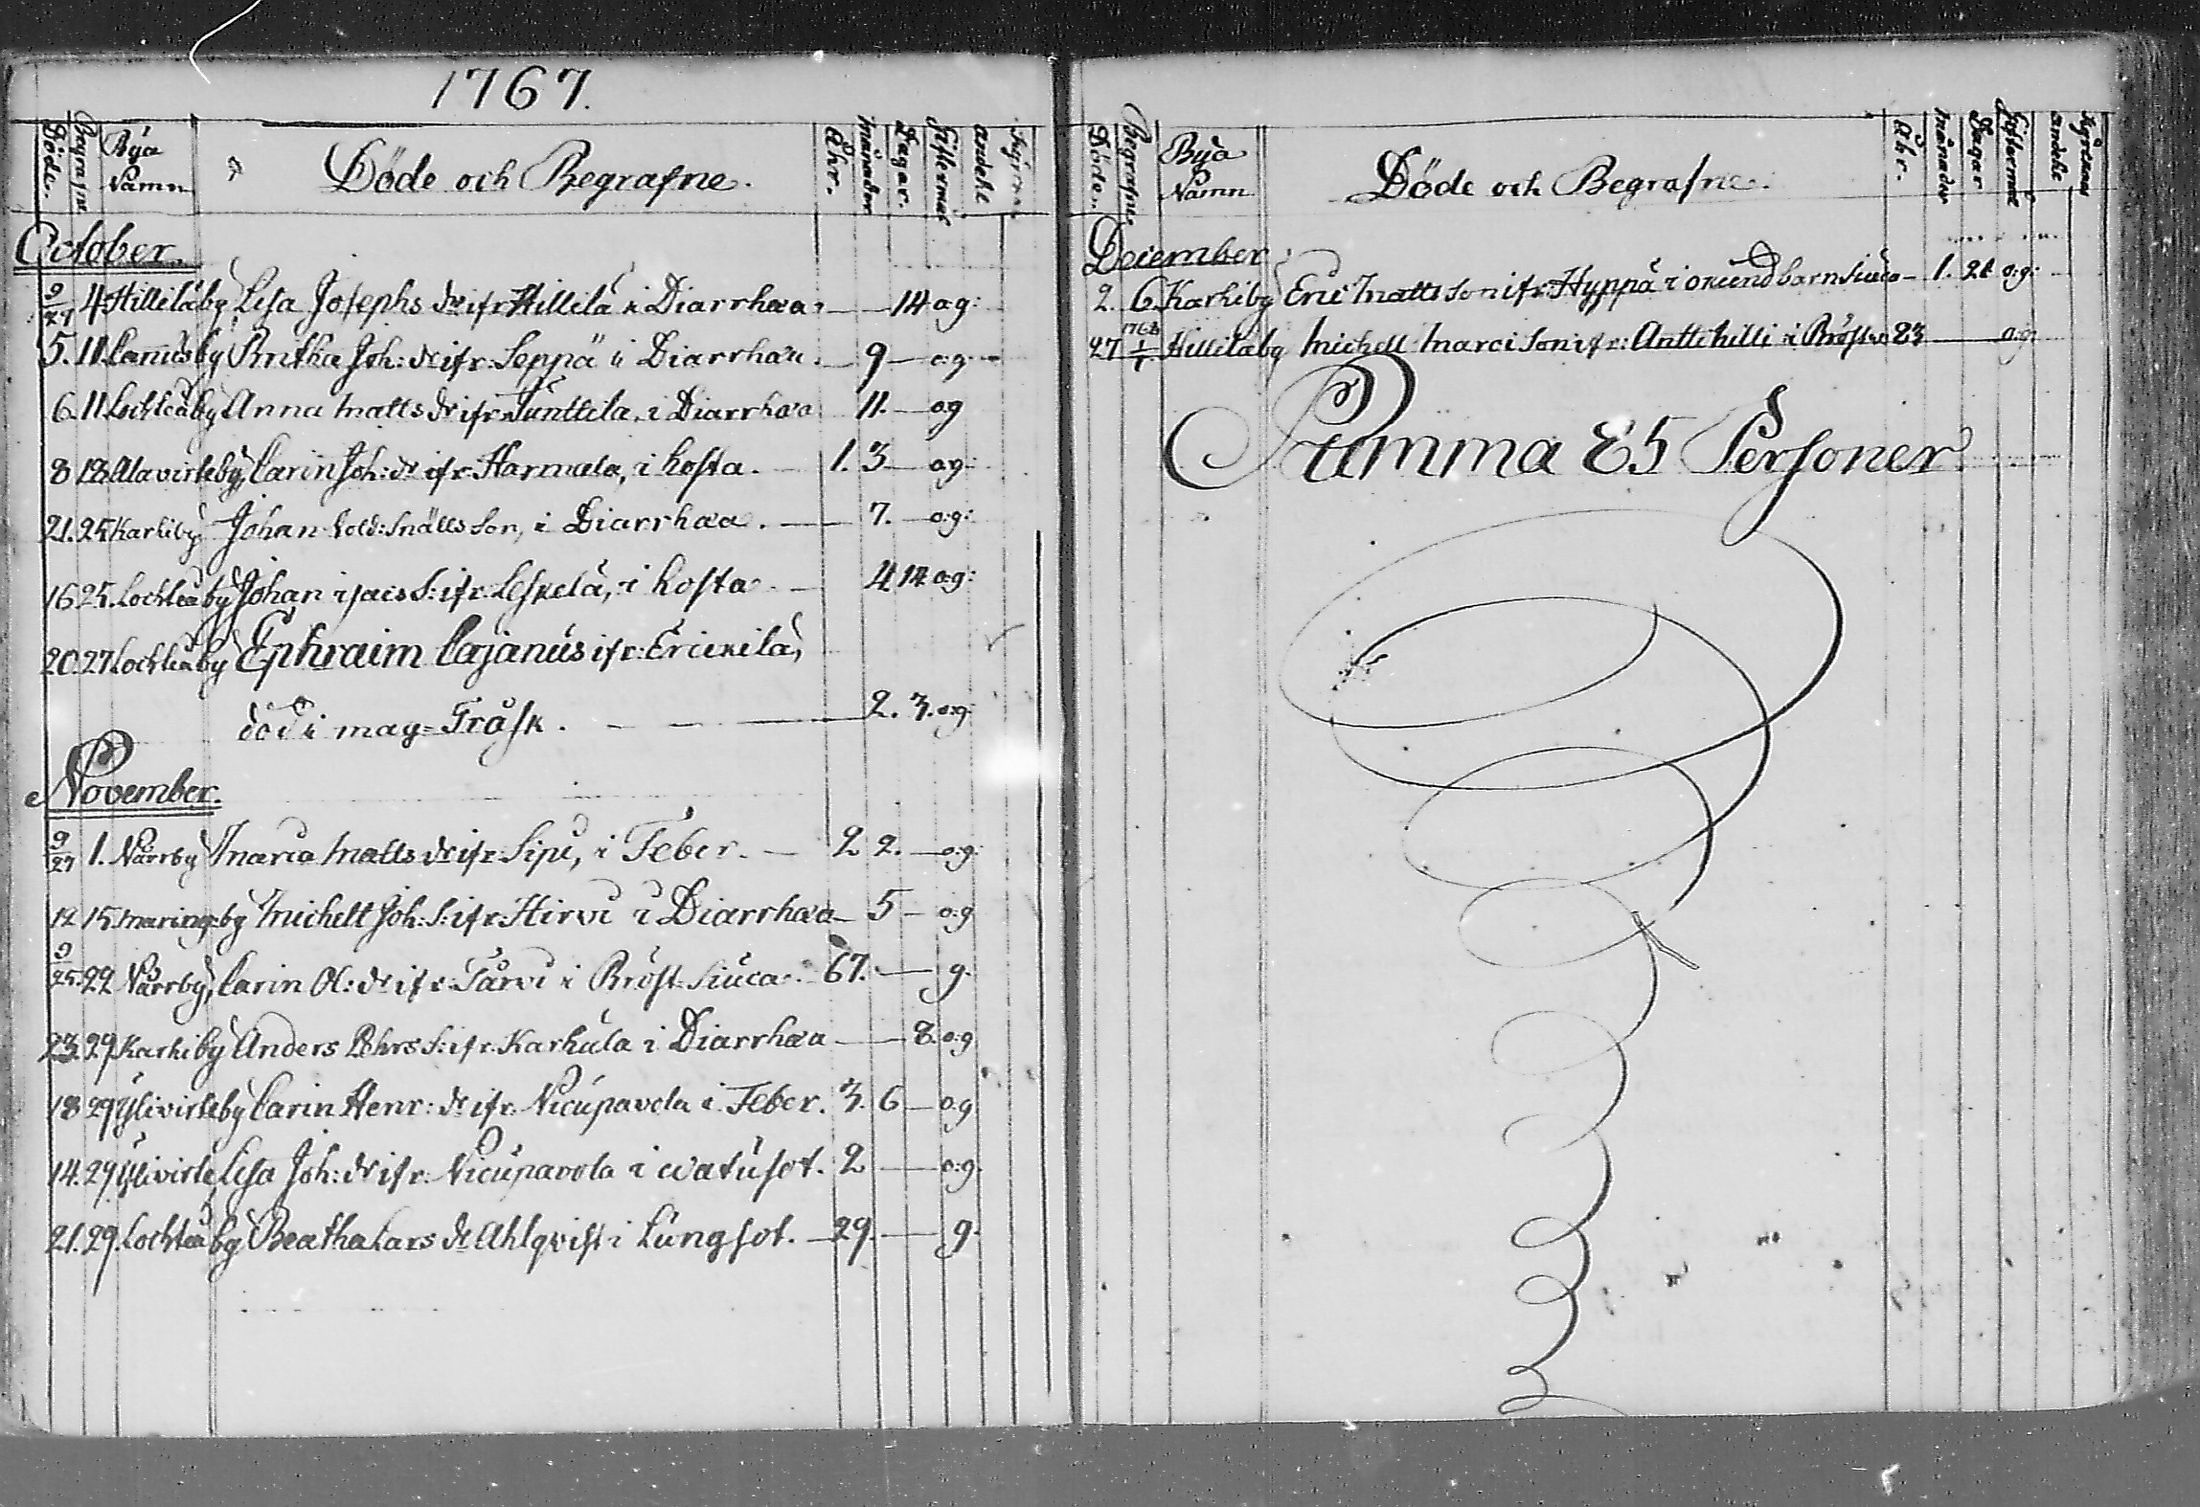 1767.
Döde. Begrafne Bÿa Namn Döde och Begrafne. Åhr. Månader Dagar. Giftermål andehl
October.
9/27 4 Hilliläby Lisa Josephs dr ifr Hillilä i Diarrhæa 14 o.g:
5. 11. Cannusby Britha Joh: dr ifr. Seppä i Diarrhæa. 9 o:g
6. 11 Lochteåby Anna Matts dr ifr. Tunttila, i Diarrhæa 11. o.g
8 18. Alavirteby, Carin Joh: dr ifr. Harmala, i hosta. 1. 3 o.g:
21. 25 Karhiby Johan Sold: Snälls Son, i Diarrhæa. 7. o:g:
16 25. Lochteåby Johan isacs S: ifr. Leskelä, i hosta 4 14 o:g:
20. 27 Lochteåby Ephraim Cajanus ifr: Erickilä,
död i mag-Tråsk. 2. 3. o:g:
November.
9/27 1. Närrby Maria Matts dr ifr. Sipi, i Feber. 2 2. o:g:
12 15 Maringby Michell Joh: S: ifr. Hirvi i Diarrhæa 5 o:g
9/25. 22 Närrby, Carin Ol: dr ifr. Särvi i Bröst Siuca. 67. g.
23. 29 Karhiby Anders S: ifr. Karhula i Diarrhæa 8. o:g
18 29 Ylivirteby Carin Henr: dr ifr. Nicupavola i Feber. 3. 6 o:g
14. 29 Ylivirte, Lisa Joh: dr ifr. Nicupavola i watusot. 2 o:g.
21. 29. Lochteåby Beatha Lars dr Ahlqvist i Lungsot. 29. g.
Döde. Begrafne Bÿa Namn Döde och Begrafne. Åhr. Månader Dagar Giftermål andehl
December
2. 6 Karhiby Eric Matts Son ifr. Hyppä i okiend barnsiuca 1. 21 o:g:
27 1768 1/1 Hilliläby Michell Marci Son ifr: Anttihilli i Bröstv. 23 o:g:
Summa 85 Personer